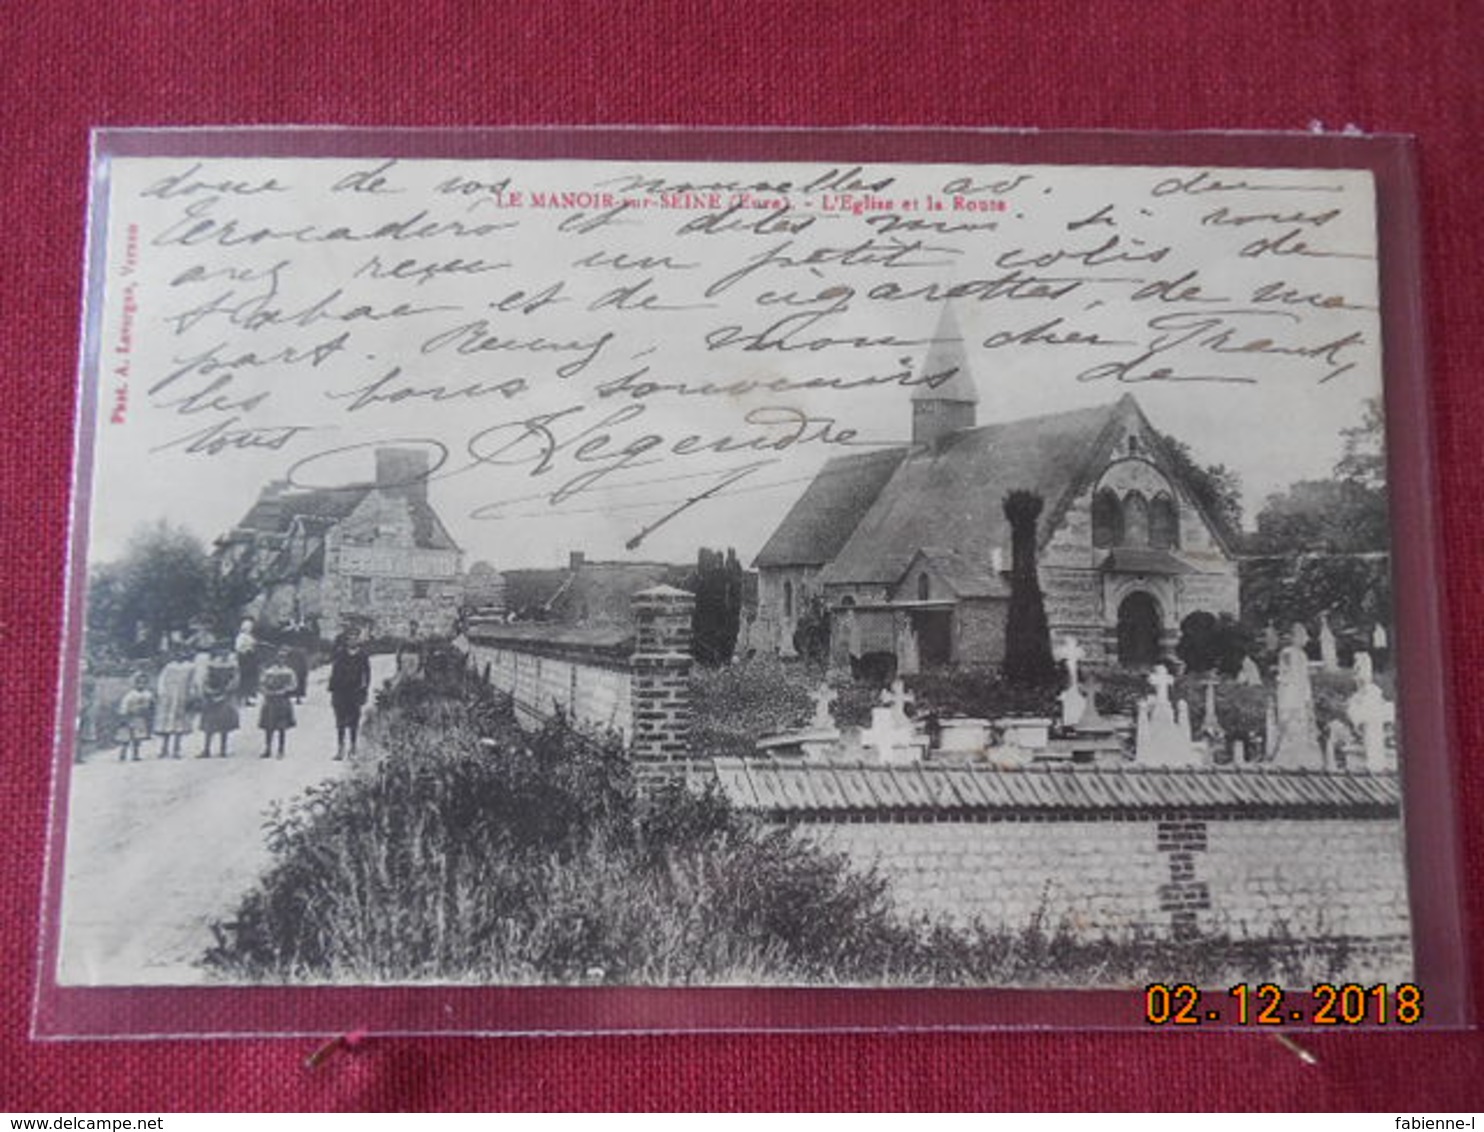 donc de vos nouvelles av. du
LE MANOIR-sur-SEINE (Eure). - L'Eglise et la Route
Trocadero et dites moi si vous
avez reçu un petit colis de
tabac et de cigarettes, de ma
part. Recevez, mon cher Frank,
les bons souvenirs de
tous Legendre
Phot. A. Lavergne, Vernon
02.12.2018
fabienne-l